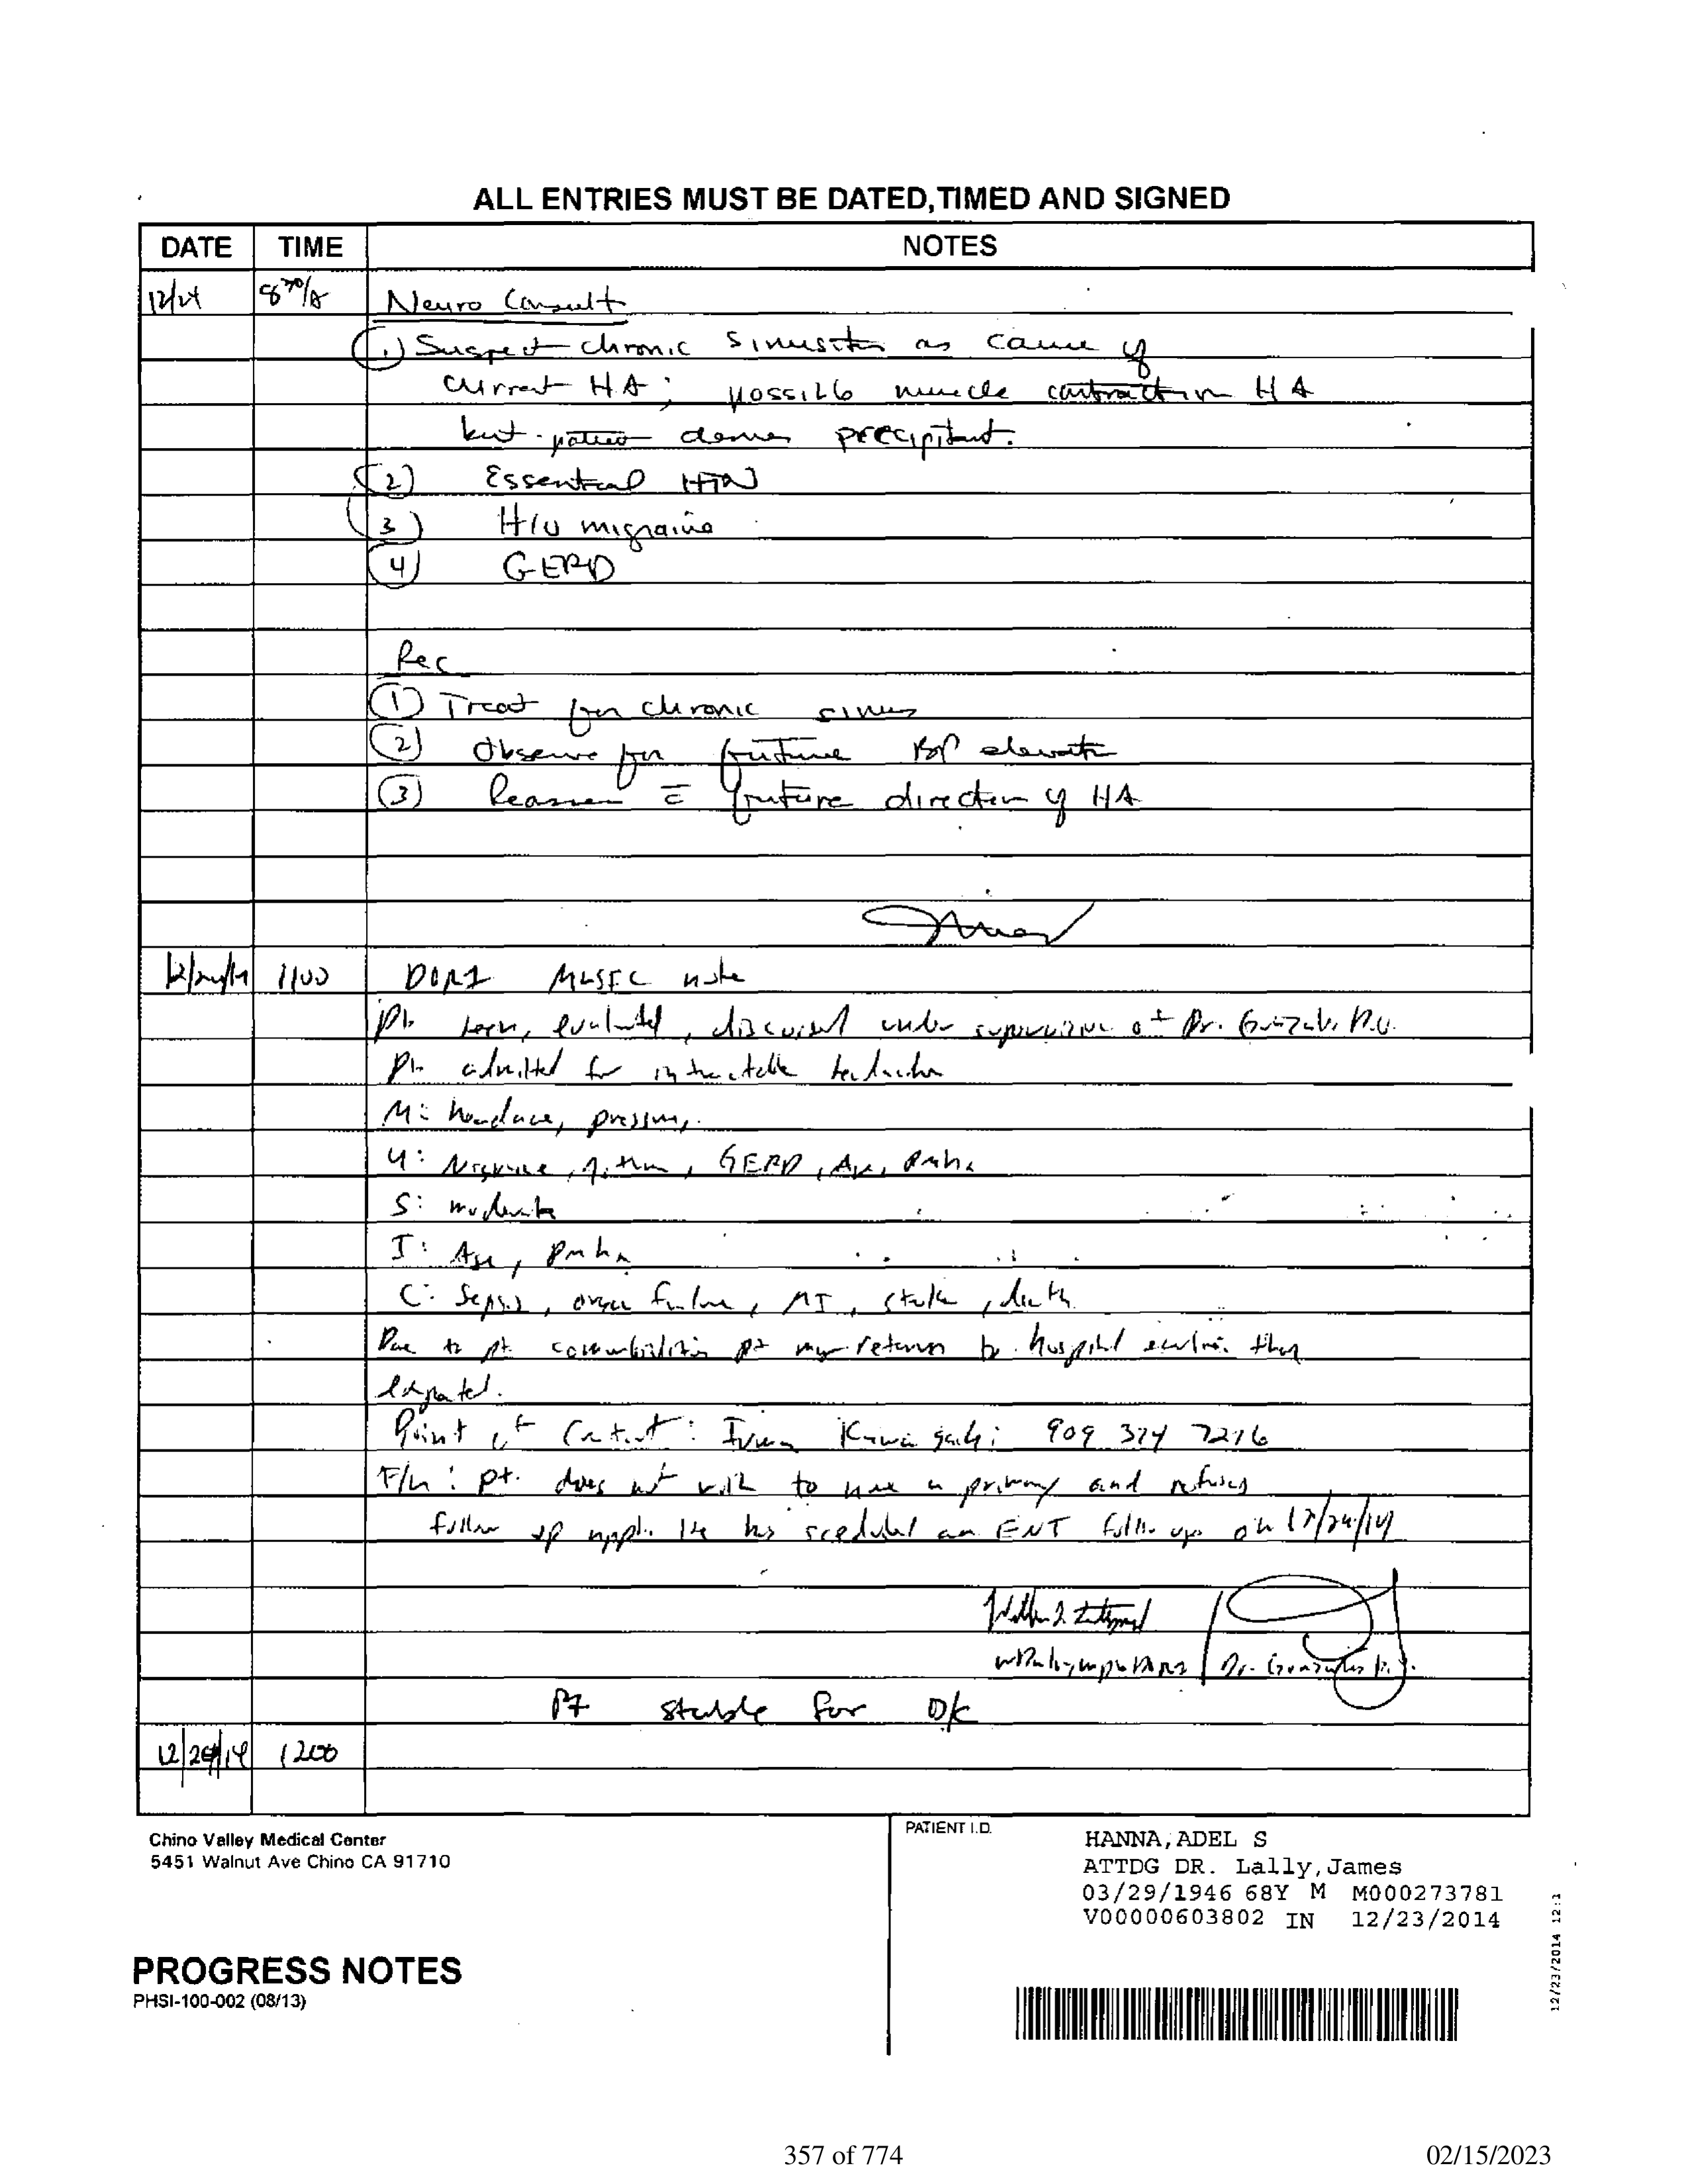 ALL ENTRIES MUST BE DATED, TIMED AND SIGNED
DATE TIME NOTES
12/24 Neuro Consult
1) Suspect chronic sinusitis as cause of
current HA; possible muscle contraction HA
but patient denies precipitant.
2) Essential HTN
3) H/o migraine
4) GERD
Rec
1) Treat for chronic sinus
2) Observe for future BP elevate
3) Reassess c̄ future direction of HA
1100 MUSIC note
Pt. seen, evaluated, discussed under supervision of Dr. Gonzales D.O.
Pt. admitted for intractable headache
M: headace, pressure,
U: Migraine, GERD, Age, Pmhx
S: moderate
I: Age, Pmhx
C: Sepsis, organ failure, MI, stroke, death
Due to pt. comorbidities pt may return to hospital earlier than
expected.
Point of Contact: 909 374 7216
F/u: pt. does not wish to use a primary and refuses
follow up appt. He has scedulel an ENT follow up on 12/24/14
Dr. Gonzales
Pt stable for D/c
12/24/14 1200
Chino Valley Medical Center
5451 Walnut Ave Chino CA 91710
PATIENT I.D.
HANNA, ADEL S
ATTDG DR. Lally, James
03/29/1946 68Y M M000273781
V00000603802 IN 12/23/2014
12/23/2014 12:1
PROGRESS NOTES
PHSI-100-002 (08/13)
357 of 774
02/15/2023